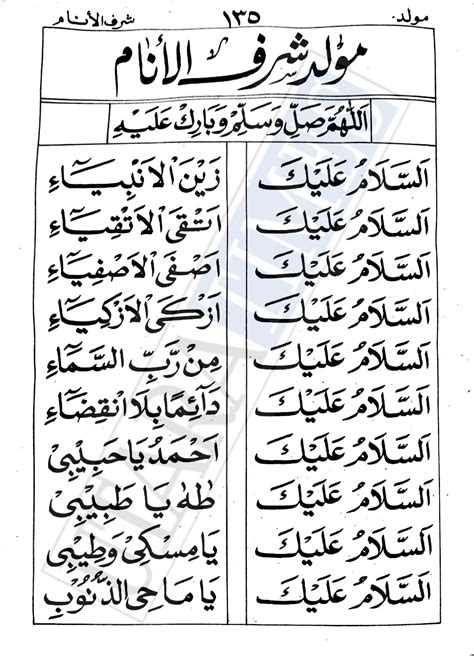 مولد ١٣٥ شرف الأنام
مَوْلِد شَرَف الْأَنَام
اَللّٰهُمَّ صَلِّ وَسَلِّمْ وَبَارِكْ عَلَيْهِ
اَلسَّلَامُ عَلَيْكَ زَيْنَ الْاَنْبِيَآءِ
اَلسَّلَامُ عَلَيْكَ اَتْقَى الْاَتْقِيَآءِ
اَلسَّلَامُ عَلَيْكَ اَصْفَى الْاَصْفِيَآءِ
اَلسَّلَامُ عَلَيْكَ اَزْكَى الْاَزْكِيَآءِ
اَلسَّلَامُ عَلَيْكَ مِنْ رَبِّ السَّمَآءِ
اَلسَّلَامُ عَلَيْكَ دَآئِمًا بِلَا انْقِضَآءِ
اَلسَّلَامُ عَلَيْكَ اَحْمَدُ يَا حَبِيْبِيْ
اَلسَّلَامُ عَلَيْكَ طٰهٰ يَا طَبِيْبِيْ
اَلسَّلَامُ عَلَيْكَ يَا مِسْكِيْ وَطِيْبِيْ
اَلسَّلَامُ عَلَيْكَ يَا مَاحِي الذُّنُوْبِ